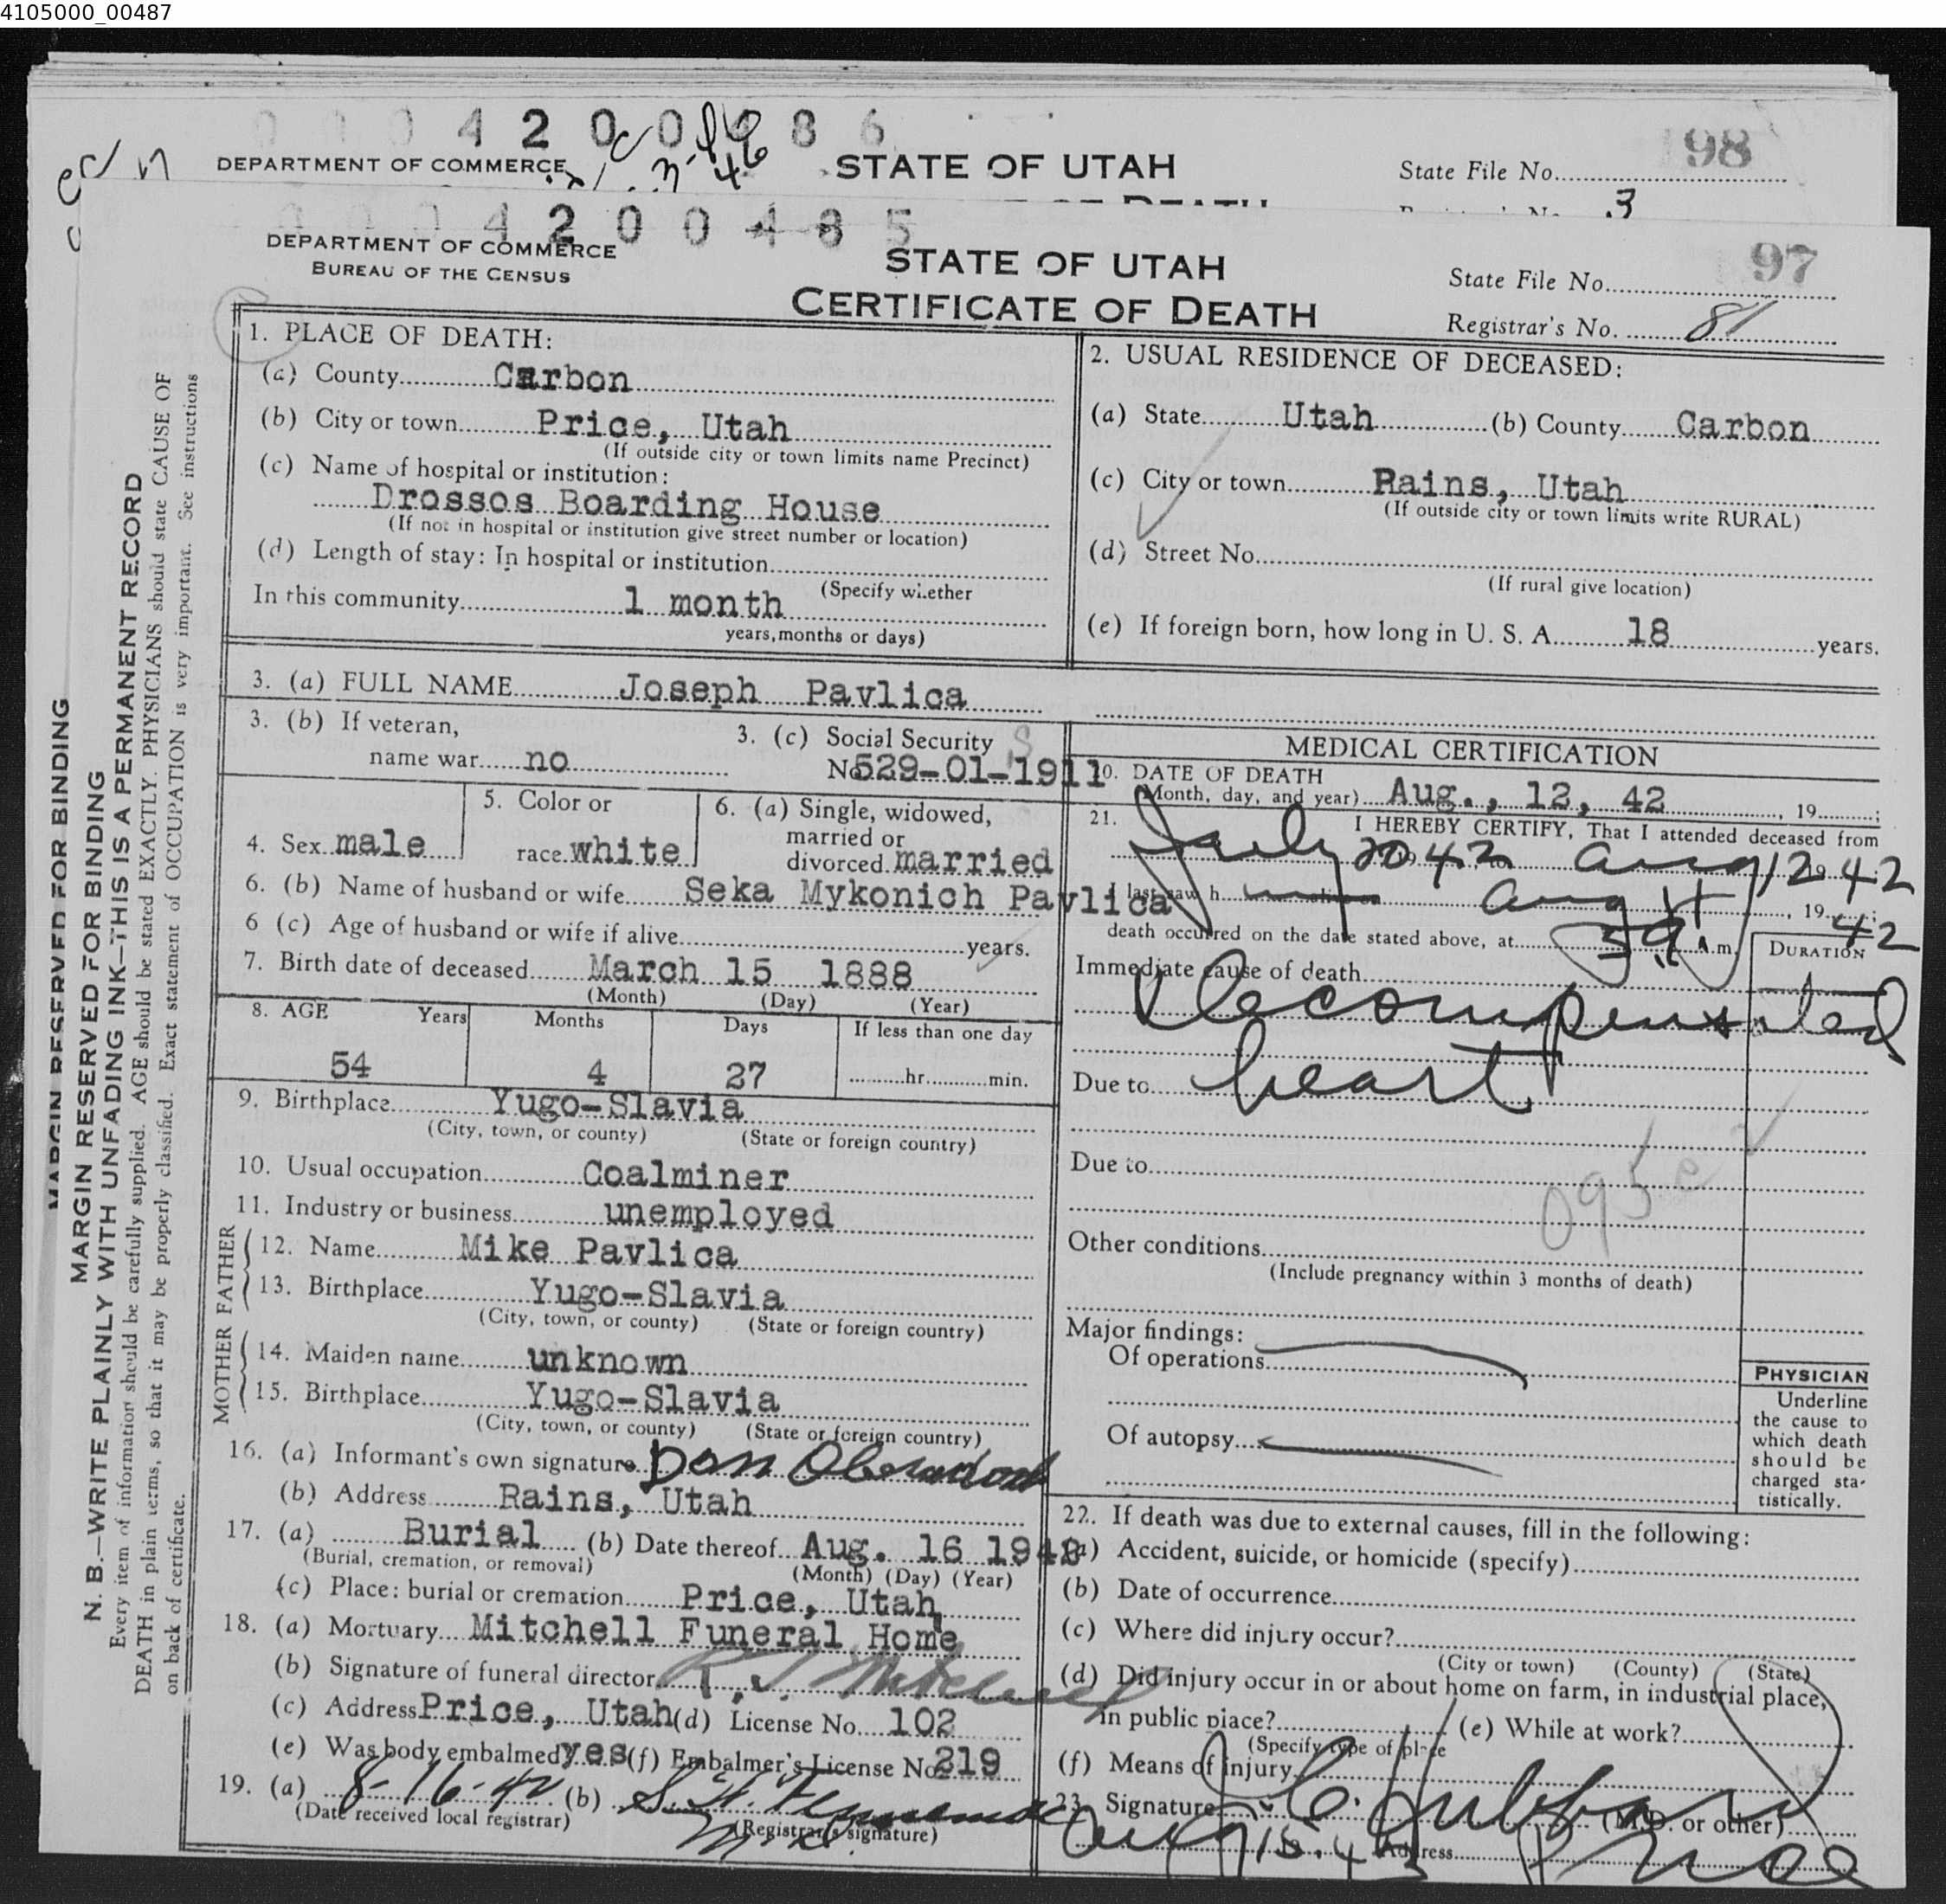 4105000_00487
4 2 0 0 4 8 6
DEPARTMENT OF COMMERCE
STATE OF UTAH
State File No. 98
3
4 2 0 0 4 8 5
DEPARTMENT OF COMMERCE
BUREAU OF THE CENSUS
STATE OF UTAH
CERTIFICATE OF DEATH
State File No. 97
Registrar's No. 81
MARGIN RESERVED FOR BINDING
MARGIN RESERVED FOR BINDING
N. B.—WRITE PLAINLY WITH UNFADING INK—THIS IS A PERMANENT RECORD
Every item of information should be carefully supplied. AGE should be stated EXACTLY. PHYSICIANS should state CAUSE OF
DEATH in plain terms, so that it may be properly classified. Exact statement of OCCUPATION is very important. See instructions
on back of certificate.
1. PLACE OF DEATH:
(a) County Carbon
(b) City or town Price, Utah
(If outside city or town limits name Precinct)
(c) Name of hospital or institution:
Drossos Boarding House
(If not in hospital or institution give street number or location)
(d) Length of stay: In hospital or institution
(Specify whether
In this community 1 month
years, months or days)
2. USUAL RESIDENCE OF DECEASED:
(a) State Utah (b) County Carbon
(c) City or town Rains, Utah
(If outside city or town limits write RURAL)
(d) Street No.
(If rural give location)
(e) If foreign born, how long in U. S. A. 18 years.
3. (a) FULL NAME Joseph Pavlica
3. (b) If veteran,
name war no
3. (c) Social Security
No. 529-01-1911
4. Sex male
5. Color or
race white
6. (a) Single, widowed,
married or
divorced married
6. (b) Name of husband or wife Seka Mykonich Pavlica
6 (c) Age of husband or wife if alive years.
7. Birth date of deceased March 15 1888
(Month) (Day) (Year)
8. AGE Years Months Days If less than one day
54 4 27 hr. min.
9. Birthplace Yugo-Slavia
(City, town, or county) (State or foreign country)
10. Usual occupation Coalminer
11. Industry or business unemployed
FATHER
12. Name Mike Pavlica
13. Birthplace Yugo-Slavia
(City, town, or county) (State or foreign country)
MOTHER
14. Maiden name unknown
15. Birthplace Yugo-Slavia
(City, town, or county) (State or foreign country)
16. (a) Informant's own signature Dan
(b) Address Rains, Utah
17. (a) Burial (b) Date thereof Aug. 16 1942
(Burial, cremation, or removal) (Month) (Day) (Year)
(c) Place: burial or cremation Price, Utah
18. (a) Mortuary Mitchell Funeral Home
(b) Signature of funeral director Mitchell
(c) Address Price, Utah (d) License No. 102
(e) Was body embalmed yes (f) Embalmer's License No. 219
19. (a) 8-16-42 (b)
(Date received local registrar) (Registrar's signature)
MEDICAL CERTIFICATION
20. DATE OF DEATH
(Month, day, and year) Aug., 12, 42, 19
21. I HEREBY CERTIFY, That I attended deceased from
July 20 42 Aug 12 19 42
I last saw h alive on Aug 11, 19 42
death occurred on the date stated above, at A.m.
DURATION
Immediate cause of death
Decompensated
Due to heart
Due to
095e
Other conditions
(Include pregnancy within 3 months of death)
Major findings:
Of operations
Of autopsy
PHYSICIAN
Underline
the cause to
which death
should be
charged sta-
tistically.
22. If death was due to external causes, fill in the following:
(a) Accident, suicide, or homicide (specify)
(b) Date of occurrence
(c) Where did injury occur?
(City or town) (County) (State)
(d) Did injury occur in or about home on farm, in industrial place,
in public place? (e) While at work?
(Specify type of place
(f) Means of injury
23. Signature Hubbard (M.D. or other)
Aug 15. 42 Address Price